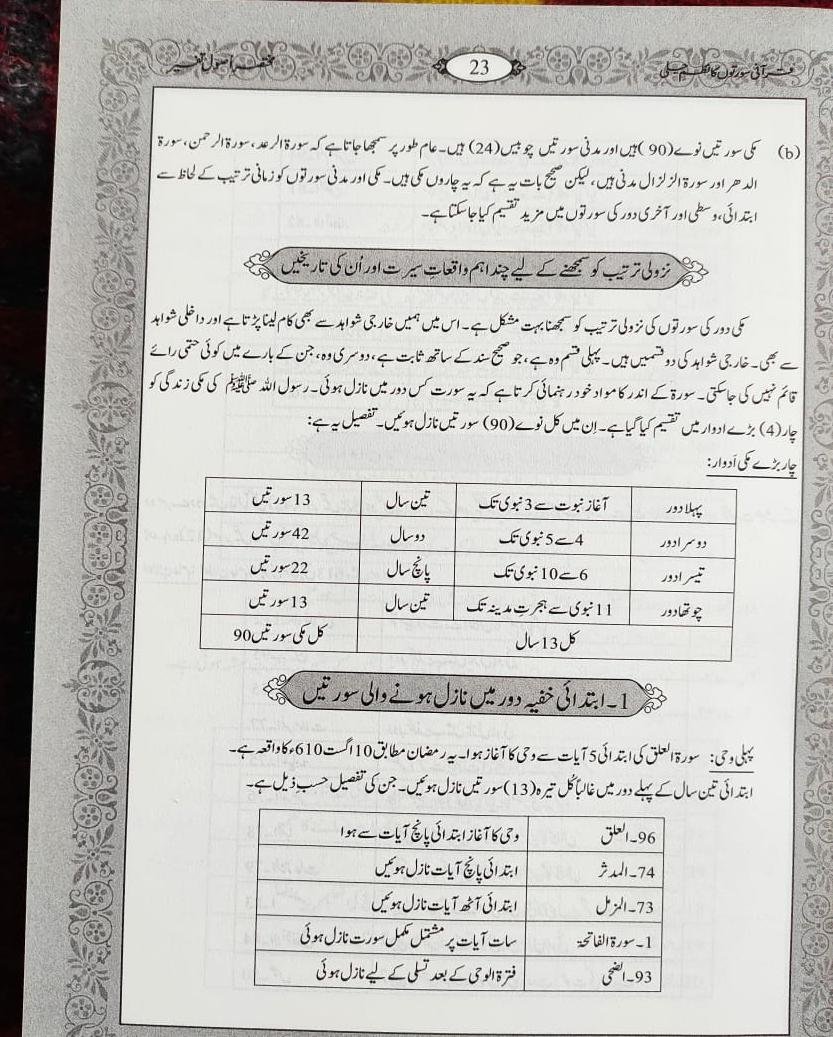 قرآنی سورتوں کا نظمِ جلی 23 مختصر اُصولِ تفسیر
(b) مکی سورتیں نوے (90) ہیں اور مدنی سورتیں چوبیس (24) ہیں۔ عام طور پر سمجھا جاتا ہے کہ سورۃ الرعد، سورۃ الرحمن، سورۃ
الدھر اور سورۃ الزلزال مدنی ہیں، لیکن صحیح بات یہ ہے کہ یہ چاروں مکی ہیں۔ مکی اور مدنی سورتوں کو زمانی ترتیب کے لحاظ سے
ابتدائی، وسطی اور آخری دور کی سورتوں میں مزید تقسیم کیا جا سکتا ہے۔
نزولی ترتیب کو سمجھنے کے لیے چند اہم واقعاتِ سیرت اور اُن کی تاریخیں
مکی دور کی سورتوں کی نزولی ترتیب کو سمجھنا بہت مشکل ہے۔ اس میں ہمیں خارجی شواہد سے بھی کام لینا پڑتا ہے اور داخلی شواہد
سے بھی۔ خارجی شواہد کی دو قسمیں ہیں۔ پہلی قسم وہ ہے، جو صحیح سند کے ساتھ ثابت ہے، دوسری وہ، جن کے بارے میں کوئی حتمی رائے
قائم نہیں کی جاسکتی۔ سورۃ کے اندر کا مواد خود رہنمائی کرتا ہے کہ یہ سورت کس دور میں نازل ہوئی۔ رسول اللہ ﷺ کی مکی زندگی کو
چار (4) بڑے ادوار میں تقسیم کیا گیا ہے۔ اِن میں کل نوے (90) سورتیں نازل ہوئیں۔ تفصیل یہ ہے:
چار بڑے مکی اَدوار:
پہلا دور آغاز نبوت سے 3 نبوی تک تین سال 13 سورتیں
دوسرا دور 4 سے 5 نبوی تک دو سال 42 سورتیں
تیسرا دور 6 سے 10 نبوی تک پانچ سال 22 سورتیں
چوتھا دور 11 نبوی سے ہجرتِ مدینہ تک تین سال 13 سورتیں
کل 13 سال کل مکی سورتیں 90
1۔ ابتدائی خفیہ دور میں نازل ہونے والی سورتیں
پہلی وحی: سورۃ العلق کی ابتدائی 5 آیات سے وحی کا آغاز ہوا۔ یہ رمضان مطابق 10 اگست 610ء کا واقعہ ہے۔
ابتدائی تین سال کے پہلے دور میں غالباً کُل تیرہ (13) سورتیں نازل ہوئیں۔ جن کی تفصیل حسبِ ذیل ہے۔
96۔ العلق وحی کا آغاز ابتدائی پانچ آیات سے ہوا
74۔ المدثر ابتدائی پانچ آیات نازل ہوئیں
73۔ المزمل ابتدائی آٹھ آیات نازل ہوئیں
1۔ سورۃ الفاتحۃ سات آیات پر مشتمل مکمل سورت نازل ہوئی
93۔ الضحیٰ فترۃ الوحی کے بعد تسلی کے لیے نازل ہوئی